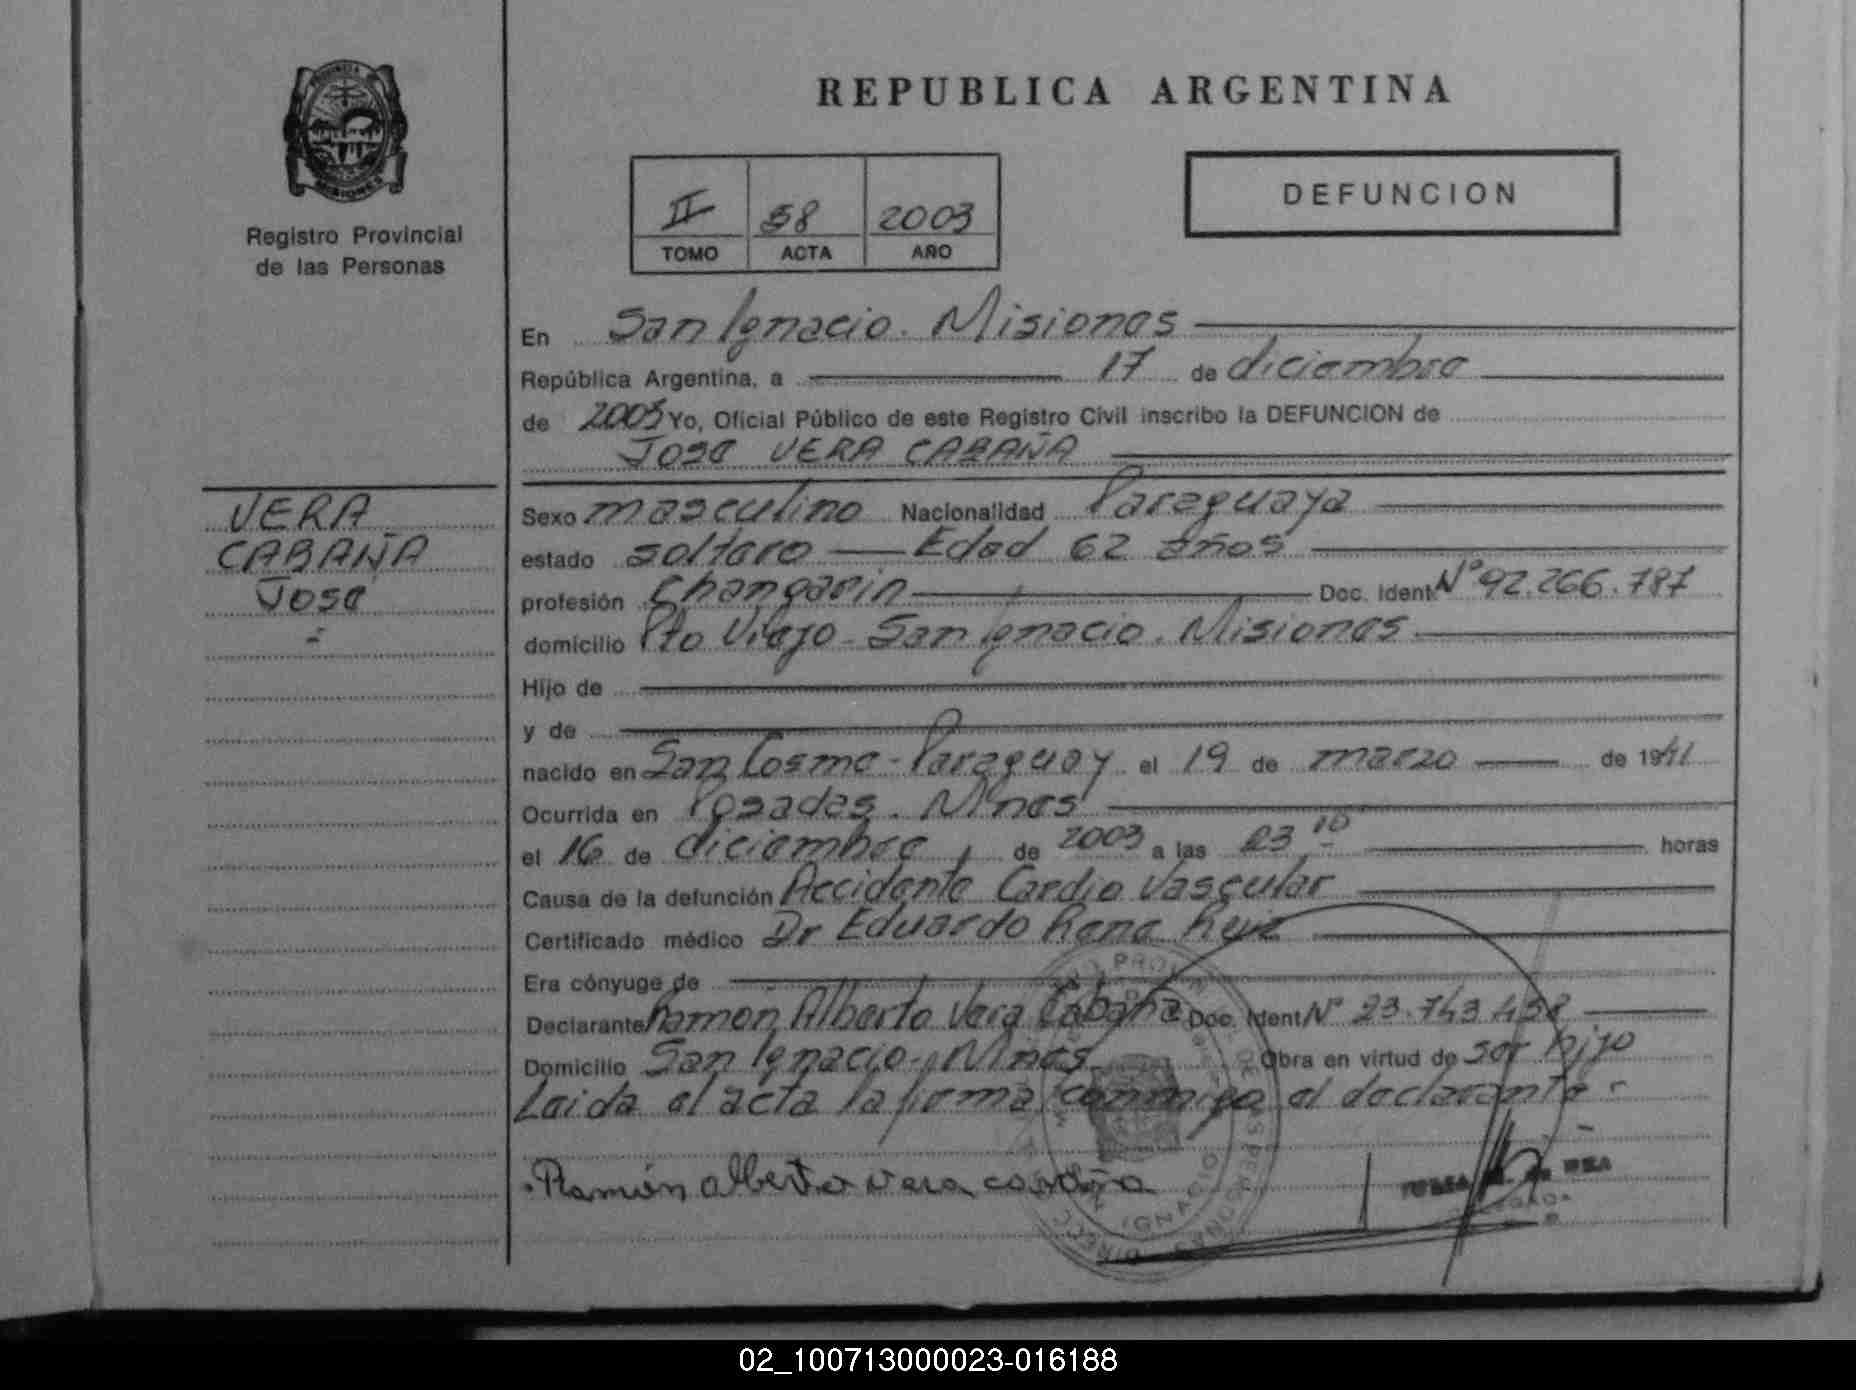 PROVINCIA DE
MISIONES
Registro Provincial
de las Personas
REPUBLICA ARGENTINA
DEFUNCION
II 58 2003
TOMO ACTA AÑO
En San Ignacio. Misiones
República Argentina, a 17 de diciembre
de 2003 Yo, Oficial Público de este Registro Civil inscribo la DEFUNCION de
Jose VERA CABAÑA
VERA
CABAÑA
Jose
Sexo masculino Nacionalidad Paraguaya
estado soltero Edad 62 años
profesión Changarin Doc. Ident. Nº 92.266.787
domicilio Pto Viejo - San Ignacio. Misiones
Hijo de
y de
nacido en San Cosme - Paraguay el 19 de marzo de 1941
Ocurrida en Posadas. Mnes
el 16 de diciembre de 2003 a las 23 10 horas
Causa de la defunción Accidente Cardio Vascular
Certificado médico Dr Eduardo Rene Ruiz
Era cónyuge de
Declarante Ramon Alberto Vera Cabaña Doc. Ident Nº 23.743.458
Domicilio San Ignacio - Mnes Obra en virtud de ser hijo
Leida el acta la firma conmigo el declarante
Ramón alberto vera cabaña
02_100713000023-016188